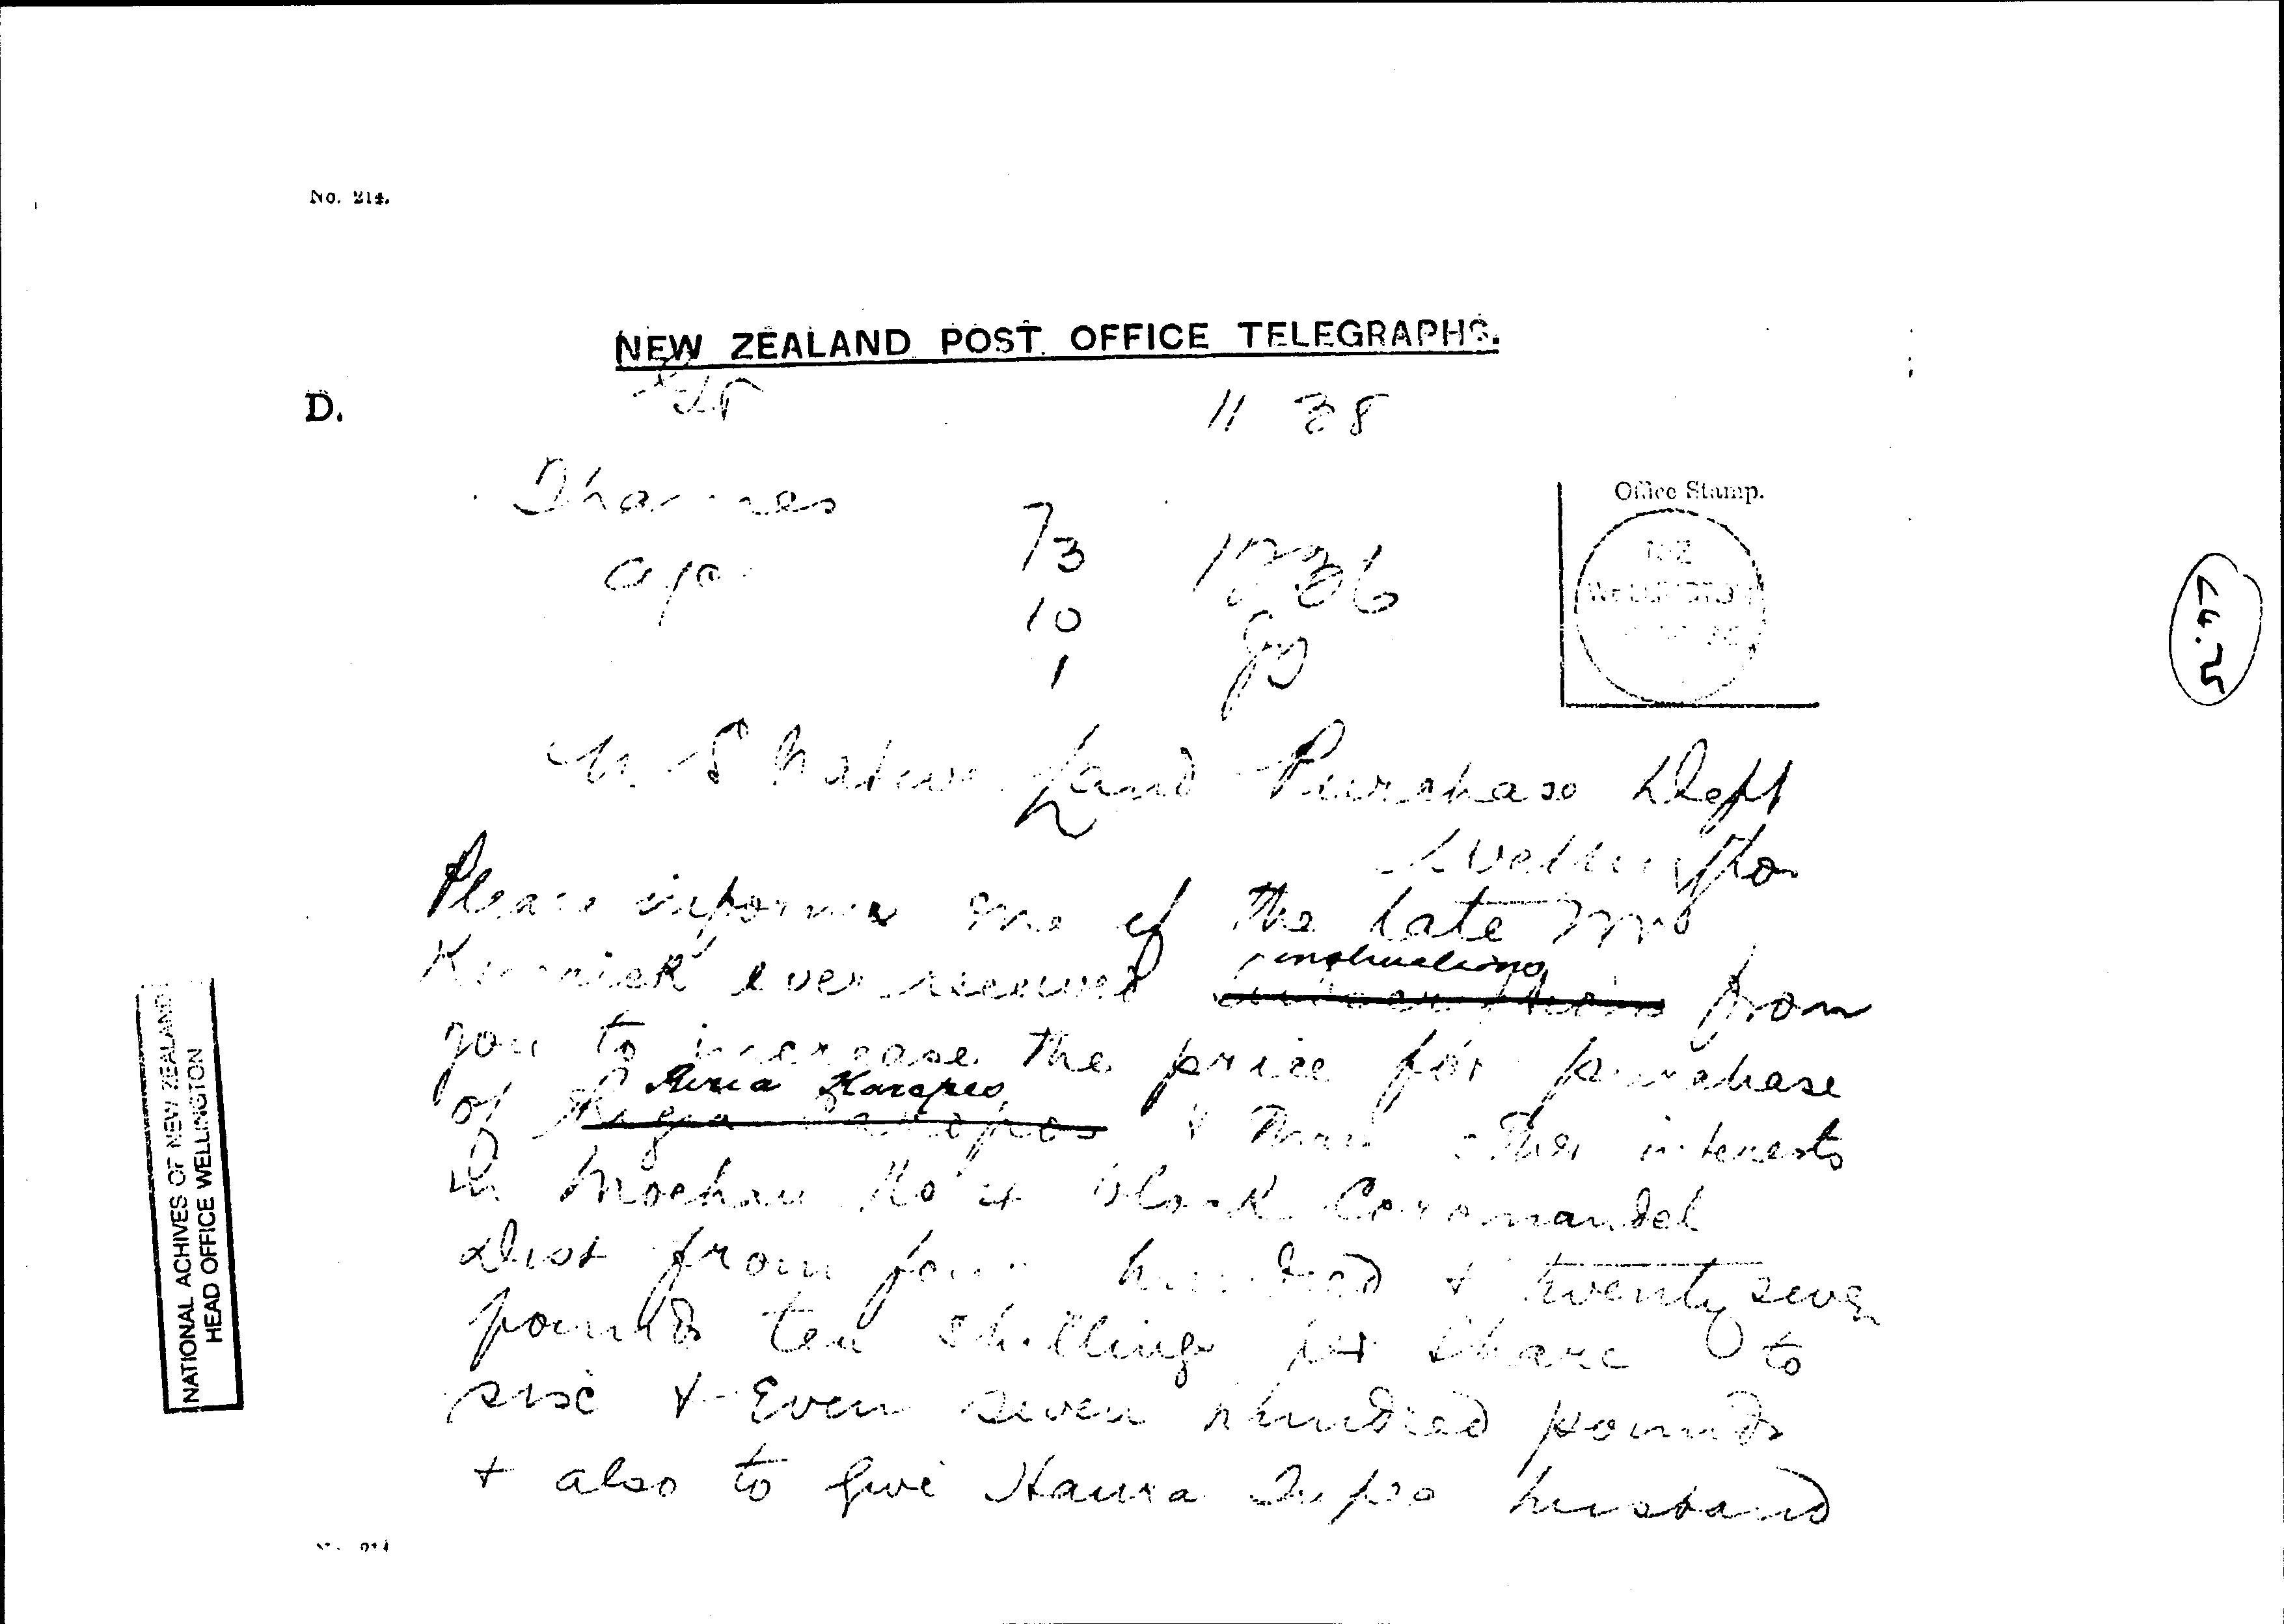 No. 214.
NEW ZEALAND POST OFFICE TELEGRAPHS.
D.
11 38
Thames
73 1236
10
1
Office Stamp.
NZ
WELLINGTON
44.25
U S Native Land Purchase Dept
Wellington
Please inform me if the late Mr
Kenrick ever received instructions from
you to increase the price for purchase
of Riria Karepeo & three other interests
in Moehau No 4 block Coromandel
dist from four hundred & twenty seven
pounds ten shillings per share to
six & Even seven hundred pounds
+ also to give Haura husband
NATIONAL ACHIVES OF NEW ZEALAND
HEAD OFFICE WELLINGTON